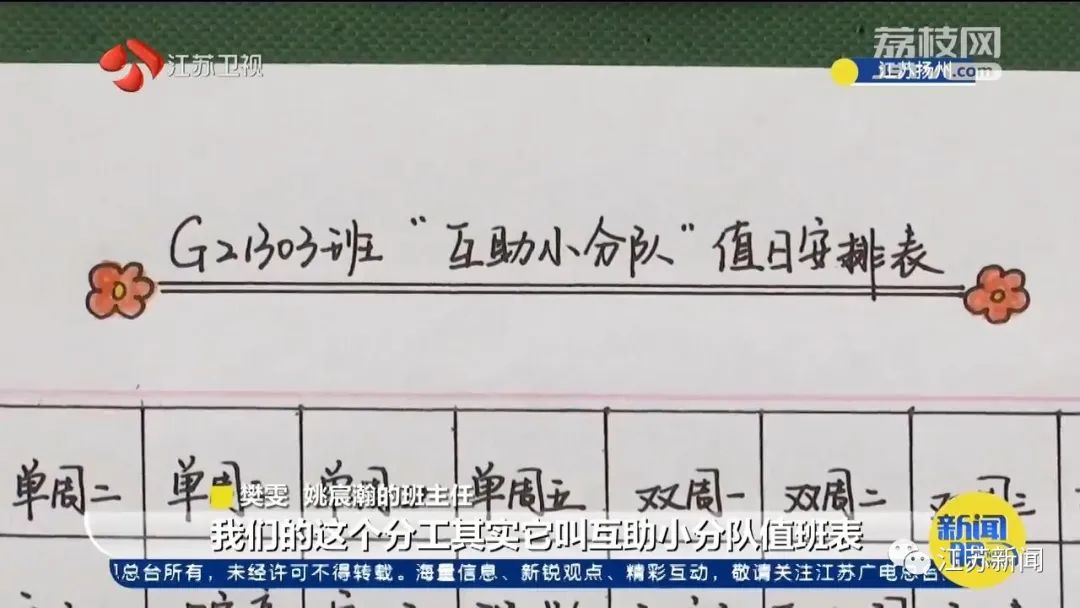 江苏卫视
荔枝网
江苏扬州.com
G21303班“互助小分队”值日安排表
单周二 单周五 双周一 双周二
樊雯 姚宸瀚的班主任
我们的这个分工其实它叫互助小分队值班表
总台所有，未经许可不得转载。海量信息、新锐观点、精彩互动，敬请关注江苏广电总台
新闻
江苏新闻